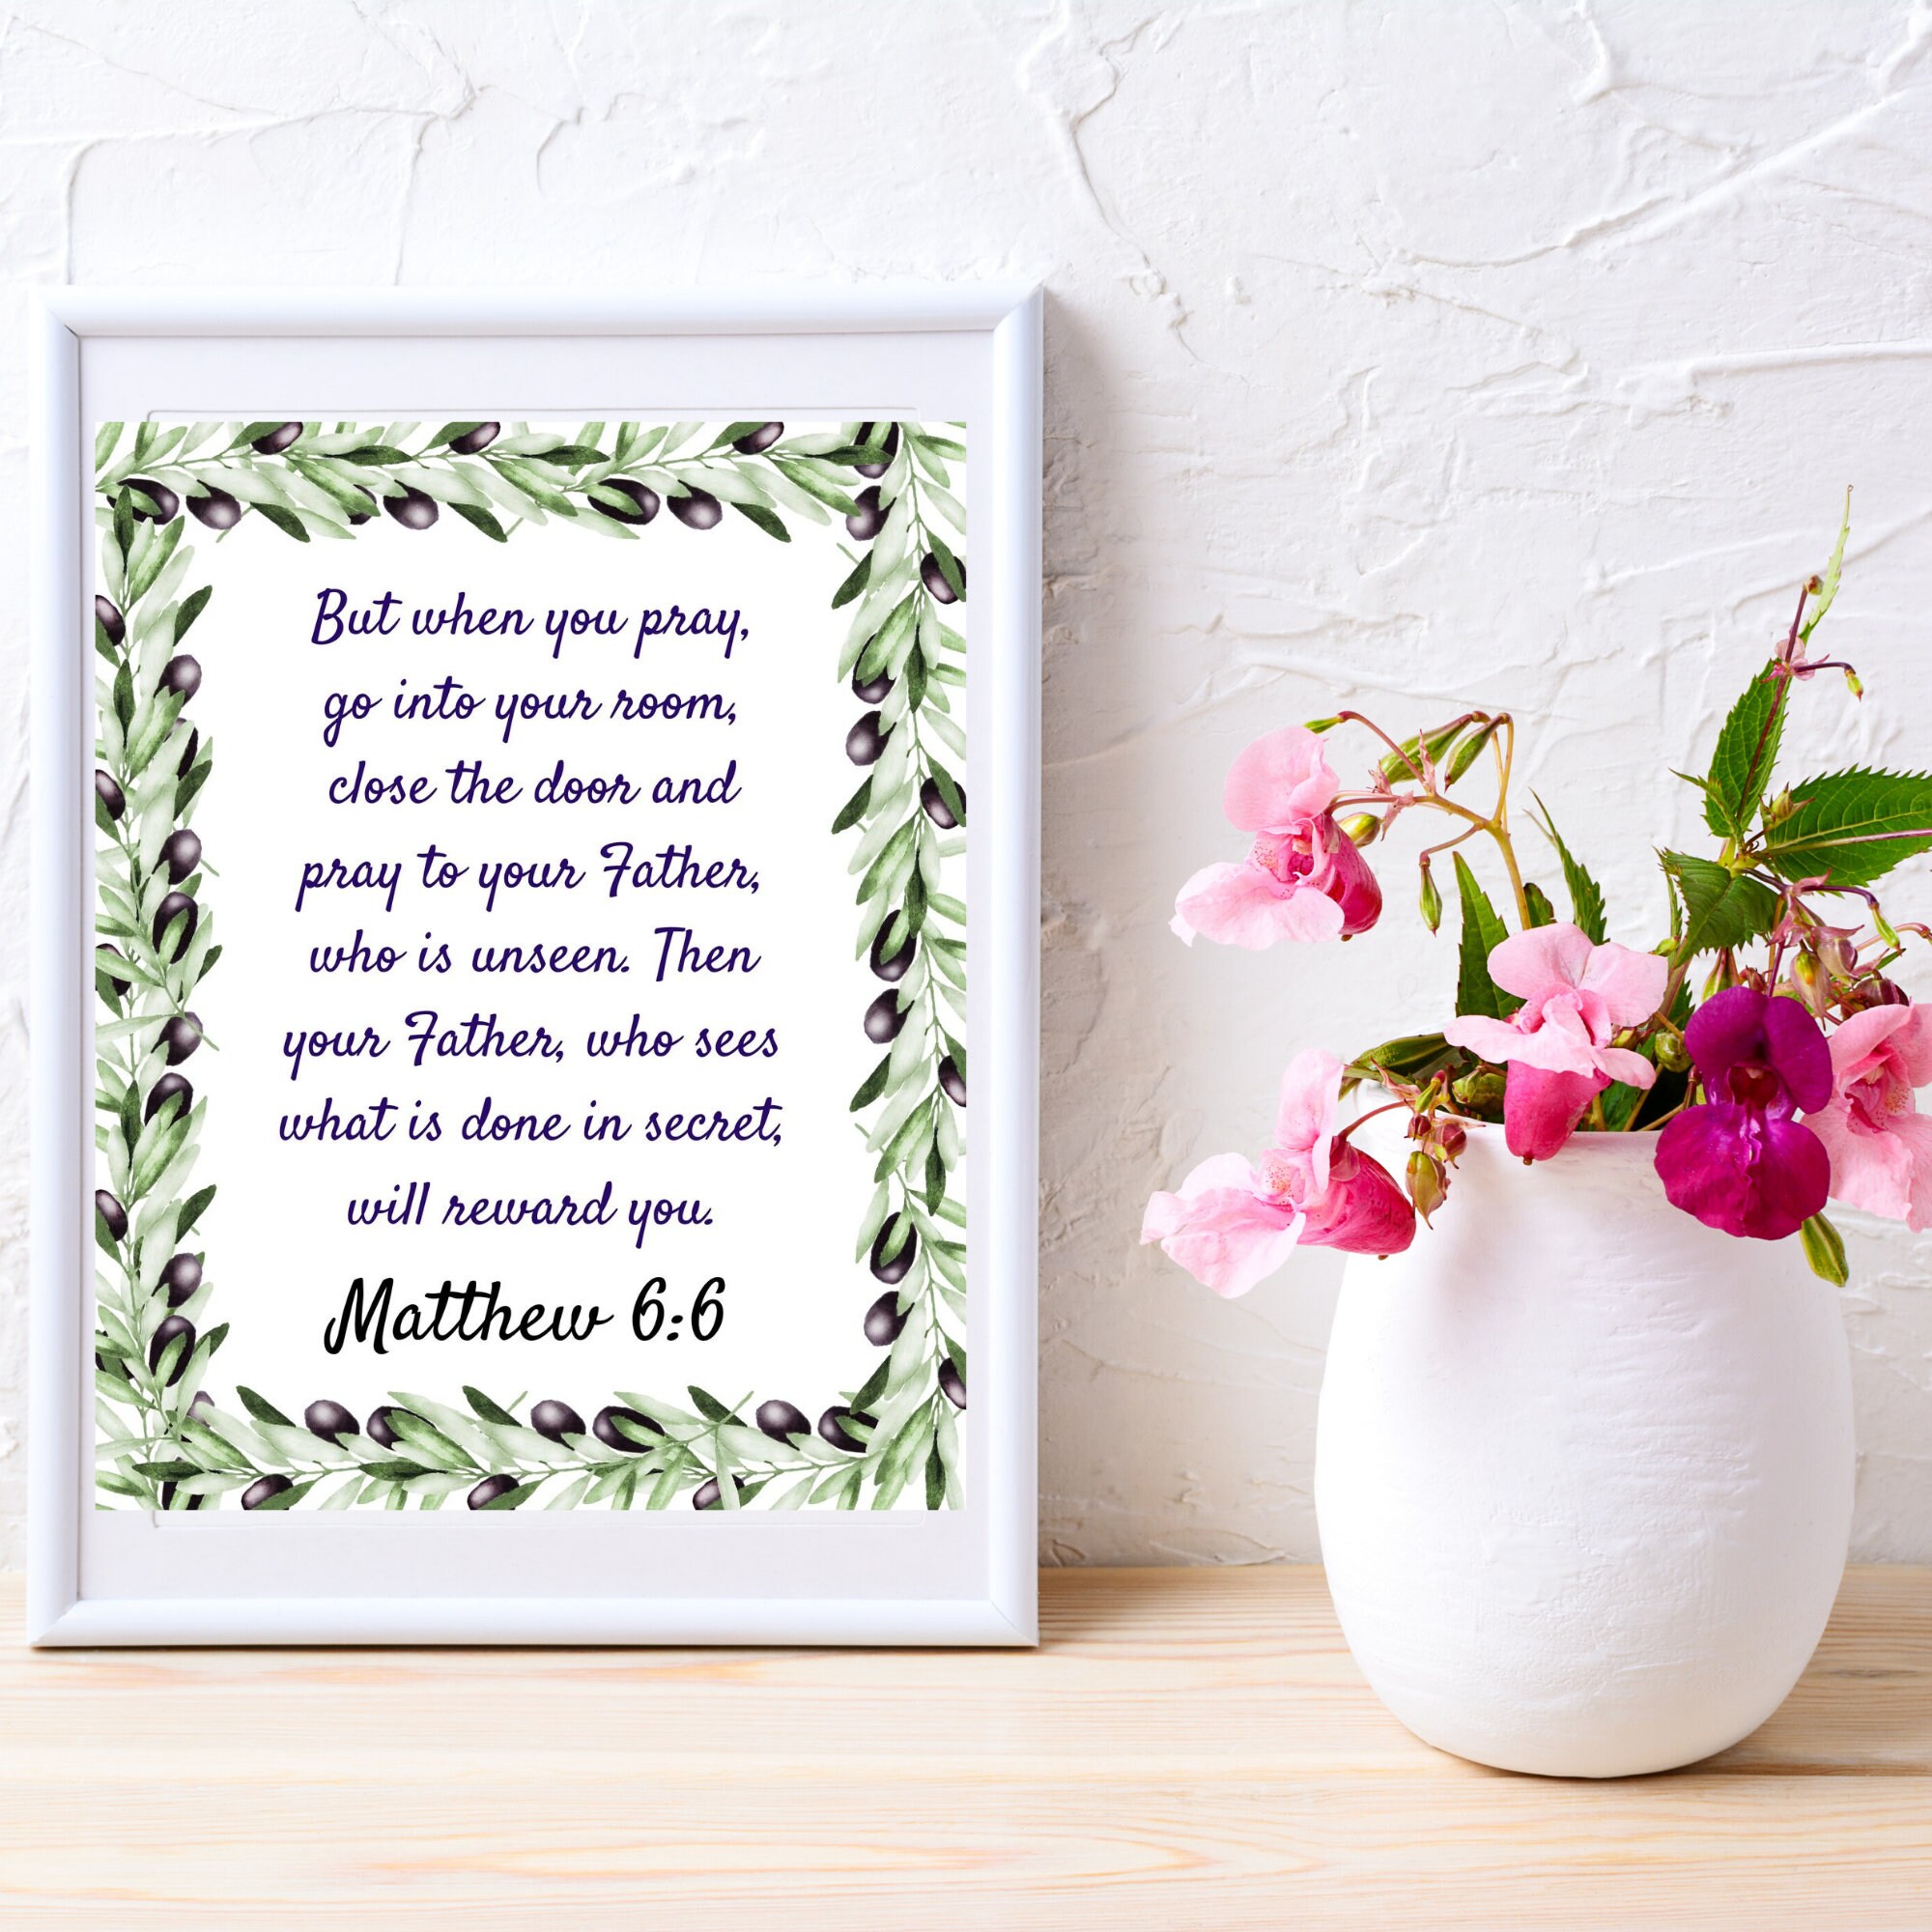 But when you pray,
go into your room,
close the door and
pray to your Father,
who is unseen. Then
your Father, who sees
what is done in secret,
will reward you.
Matthew 6:6